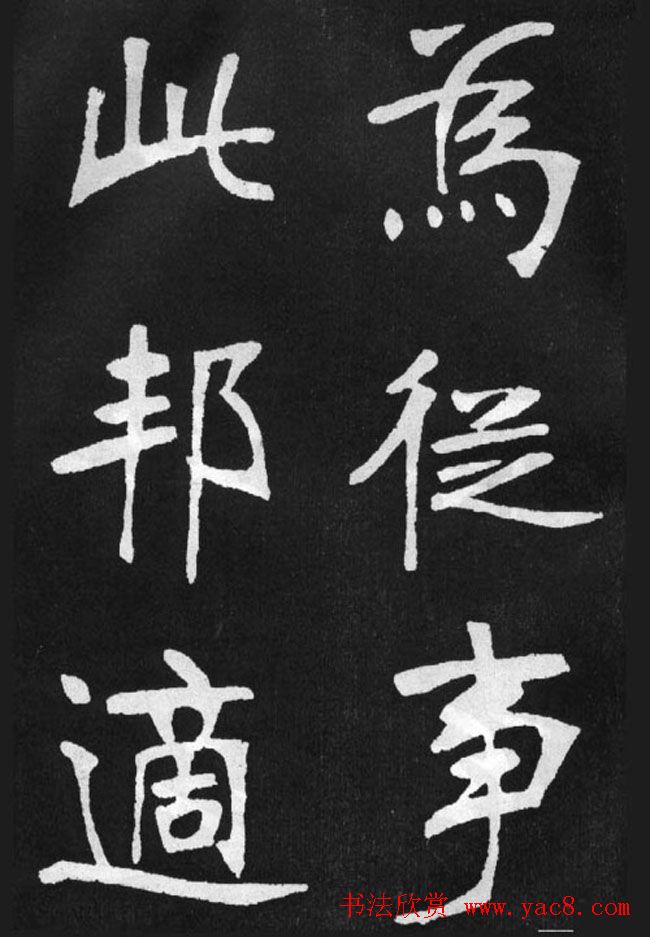 為從事
此邦適
书法欣赏 www.yac8.com